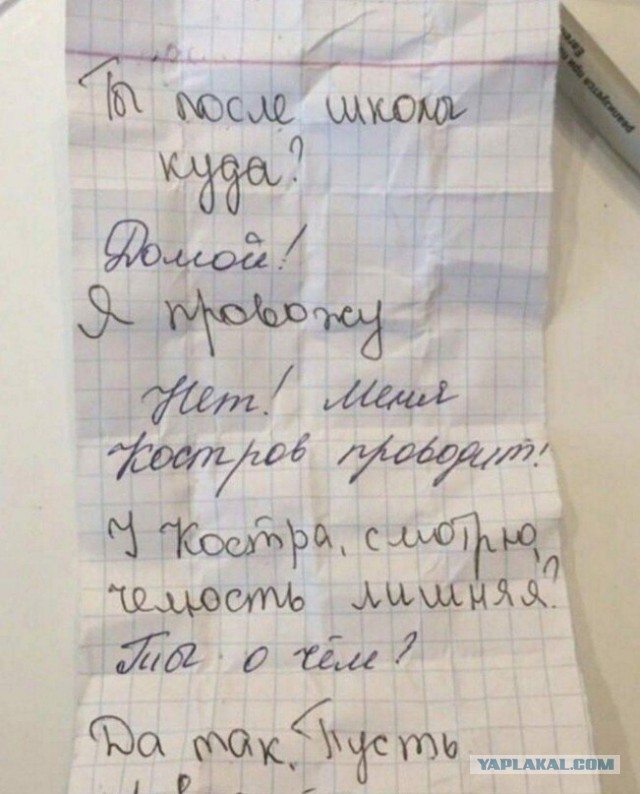 Ты после школы
куда?
Домой!
Я провожу
Нет! Меня
Костров проводит!
У Костра, смотрю,
челюсть лишняя?
Ты о чём?
Да так. Пусть
YAPLAKAL.COM